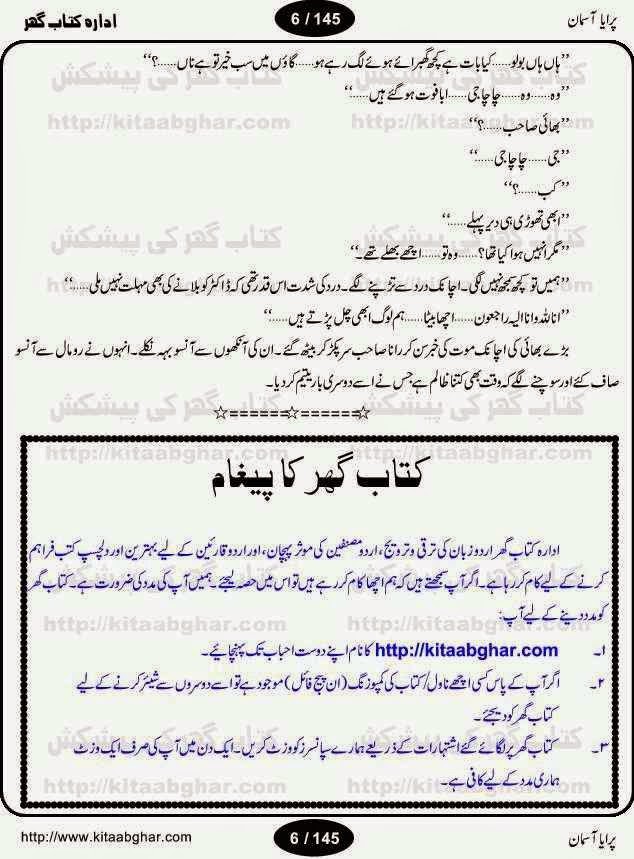 پرایا آسمان
6 / 145
ادارہ کتاب گھر
’’ہاں ہاں بولو……کیا بات ہے کچھ گھبرائے ہوئے لگ رہے ہو……گاؤں میں سب خیر تو ہے ناں……؟‘‘
’’وہ……وہ……چاچا جی……ابا فوت ہو گئے ہیں……‘‘
’’بھائی صاحب……؟‘‘
’’جی……چاچا جی……‘‘
’’کب……؟‘‘
’’ابھی تھوڑی ہی دیر پہلے……‘‘
’’مگر انہیں ہوا کیا تھا؟……وہ تو……اچھے بھلے تھے۔‘‘
’’ہمیں تو کچھ سمجھ نہیں لگی۔ اچانک درد سے تڑپنے لگے۔ درد کی شدت اس قدر تھی کہ ڈاکٹر کو بلانے کی بھی مہلت نہیں ملی……‘‘
’’انا للہ وانا الیہ راجعون……اچھا بیٹا……ہم لوگ ابھی چل پڑتے ہیں……‘‘
بڑے بھائی کی اچانک موت کی خبر سن کر رانا صاحب سر پکڑ کر بیٹھ گئے۔ ان کی آنکھوں سے آنسو بہہ نکلے۔ انہوں نے رومال سے آنسو
صاف کئے اور سوچنے لگے کہ وقت بھی کتنا ظالم ہے جس نے اسے دوسری بار یتیم کر دیا۔
☆======☆======☆
کتاب گھر کا پیغام
ادارہ کتاب گھر اردو زبان کی ترقی و ترویج، اردو مصنفین کی موثر پہچان، اور اردو قارئین کے لیے بہترین اور دلچسپ کتب فراہم
کرنے کے لیے کام کر رہا ہے۔ اگر آپ سمجھتے ہیں کہ ہم اچھا کام کر رہے ہیں تو اس میں حصہ لیجئے۔ ہمیں آپ کی مدد کی ضرورت ہے۔ کتاب گھر
کو مدد دینے کے لیے آپ:
۱۔ http://kitaabghar.com کا نام اپنے دوست احباب تک پہنچائیے۔
۲۔ اگر آپ کے پاس کسی اچھے ناول/کتاب کی کمپوزنگ (ان پیج فائل) موجود ہے تو اسے دوسروں سے شیئر کرنے کے لیے
کتاب گھر کو دیجئے۔
۳۔ کتاب گھر پر لگائے گئے اشتہارات کے ذریعے ہمارے سپانسرز کو وزٹ کریں۔ ایک دن میں آپ کی صرف ایک وزٹ
ہماری مدد کے لیے کافی ہے۔
پرایا آسمان
6 / 145
http://www.kitaabghar.com
کتاب گھر کی پیشکش
http://kitaabghar.com